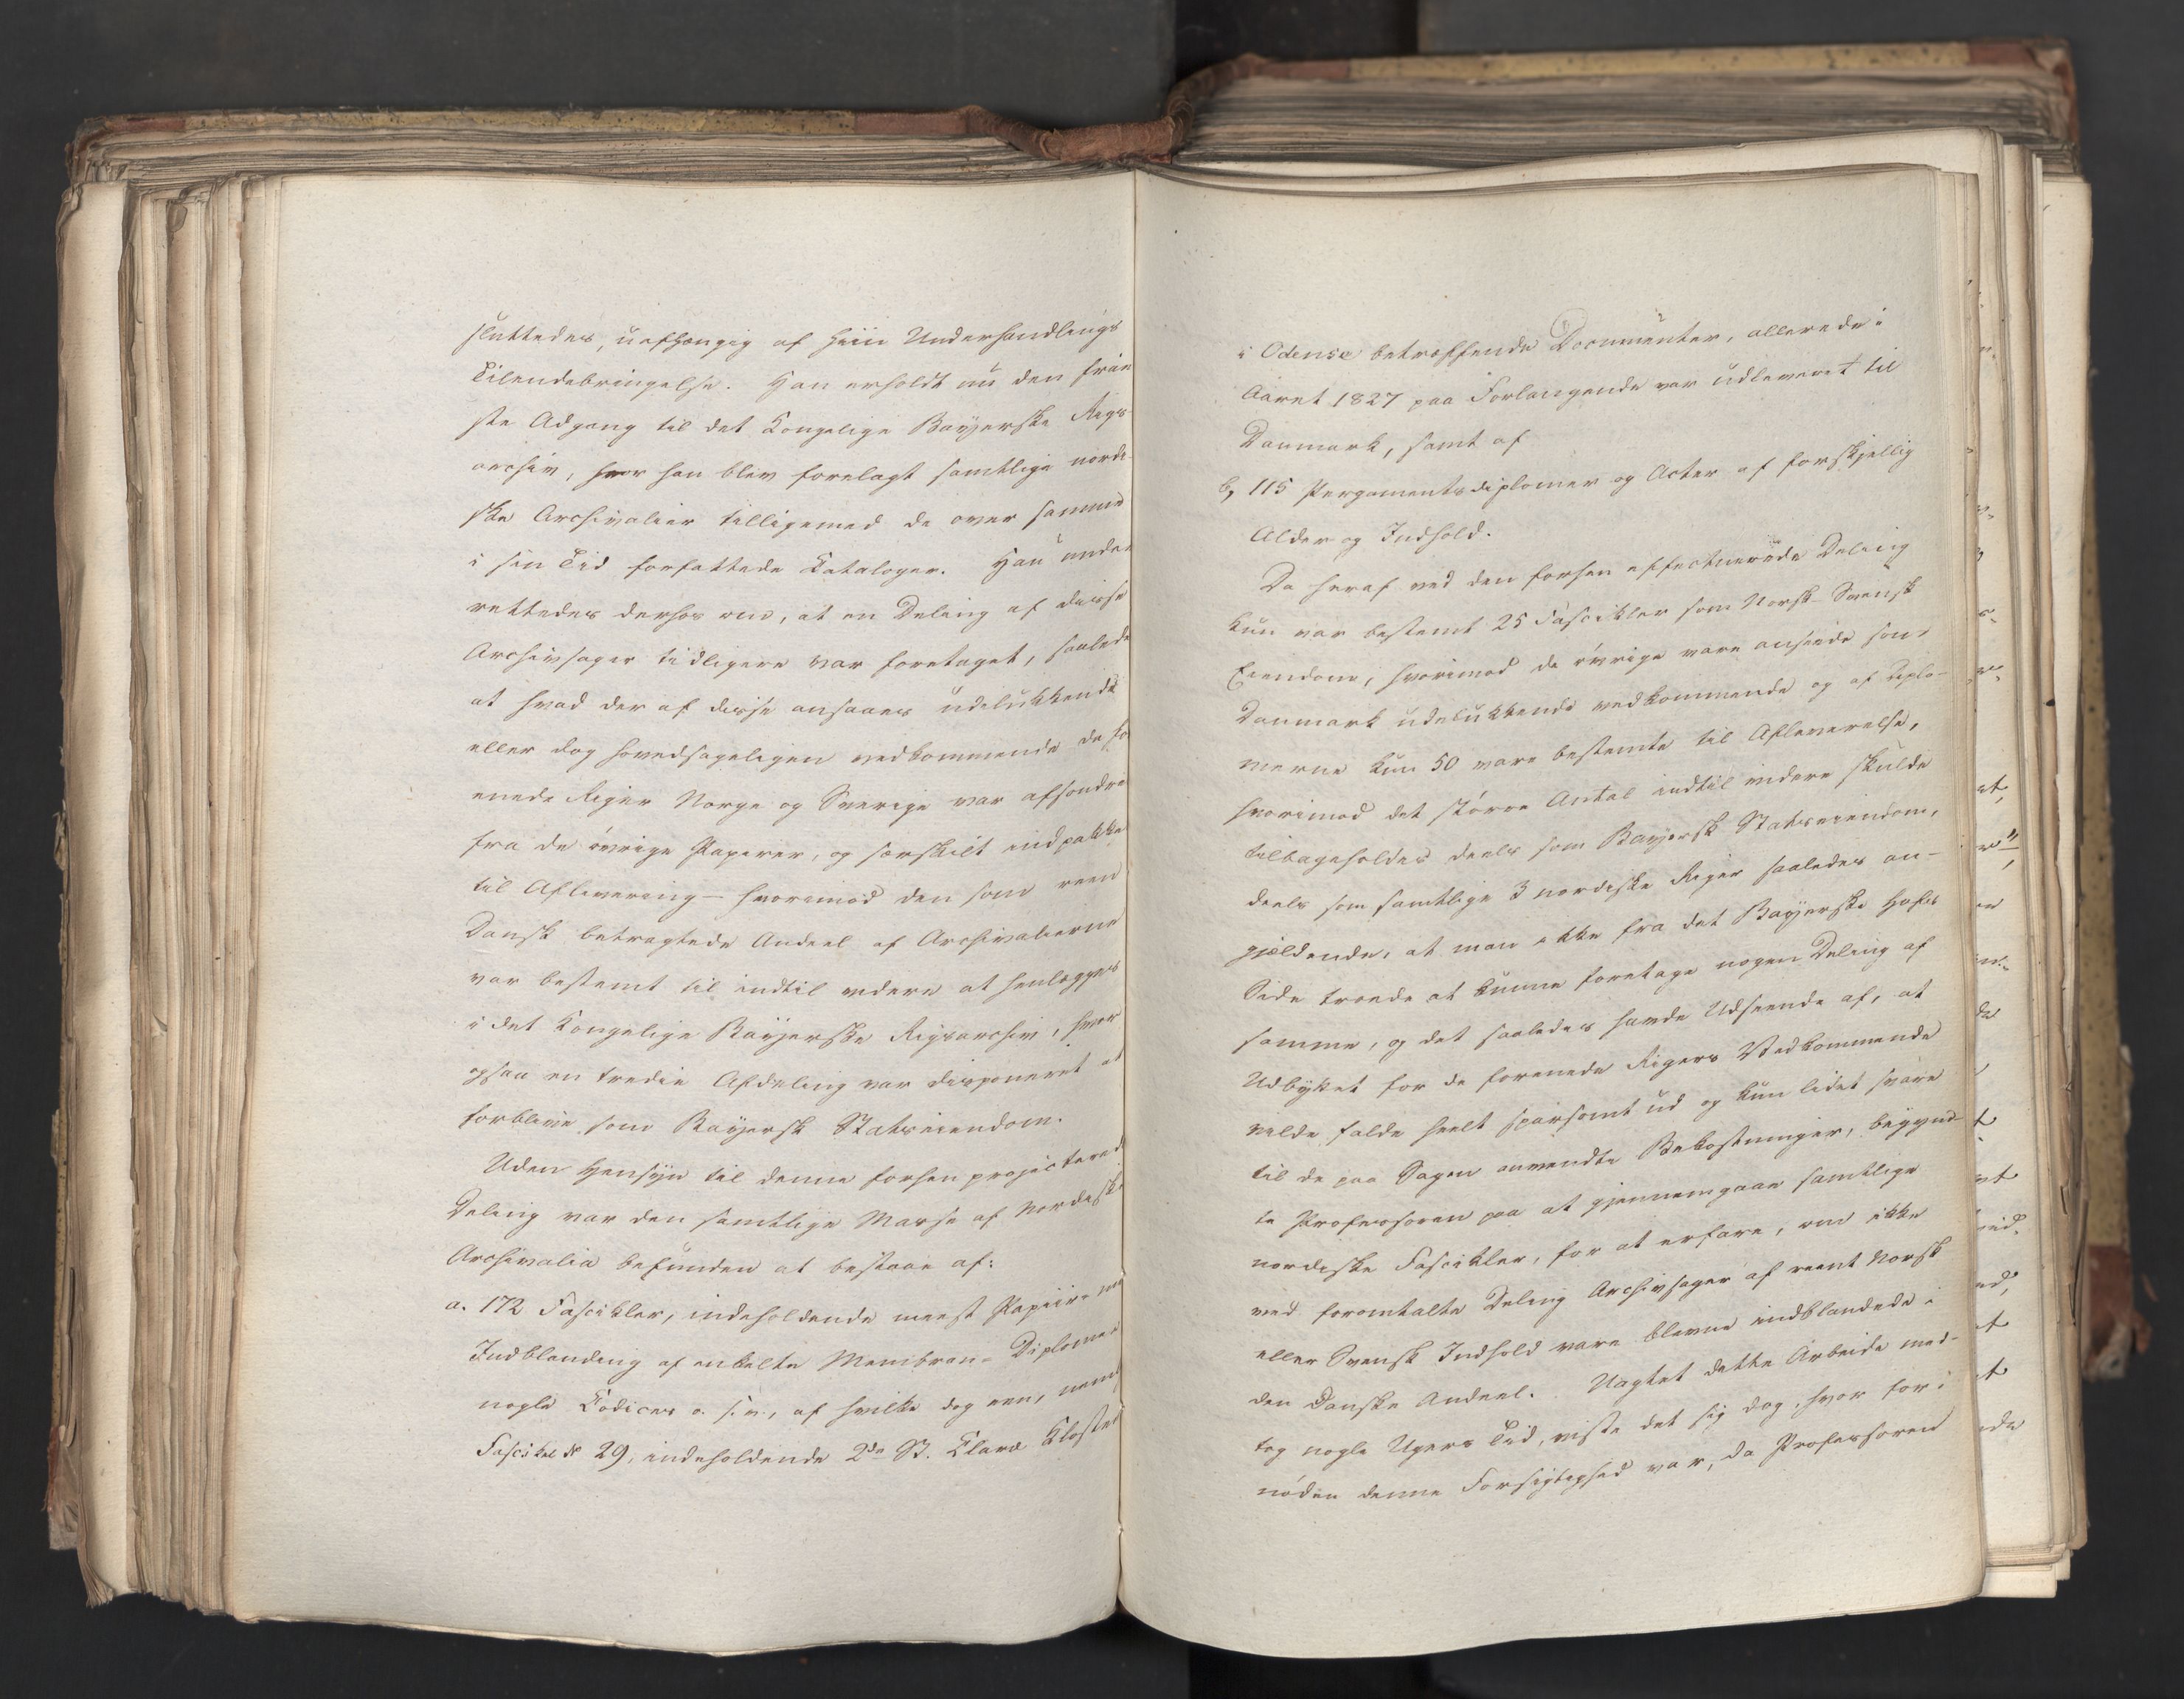 sluttedes, uafhængig af hiin Underhandlings
Tilendebringelse. Han erholdt nu den frie
ste Adgang til det Kongelige Bayerske Rigs-
archiv, hvor han blev forelagt samtlige nordi-
ske Archivalier tilligemed de over samme
i sin Tid forfattede Kataloger. Han under
rettedes derhos om, at en Deling af disse
Archivsager tidligere var foretaget, saalede
at hvad der af disse ansaaes udelukkende
eller dog hovedsageligen vedkommende de fo
enede Riger Norge og Sverige var afsondre
fra de øvrige Papirer, og særskilt indpakke
til Aflevering – hvorimod den som reen
Dansk betragtede Andeel af Archivalierne
var bestemt til indtil videre at henlægges
i det Kongelige Bayerske Rigsarchiv, hvor
ogsaa en tredie Afdeling var disponeret at
forblive som Bayersk Statseiendom.
Uden Hensyn til denne forhen projectered
Deling var den samtlige Masse af Nordisk
Archivalia befunden at bestaae af:
a. 172 Fascikler, indeholdende meest Papiir
Indblanding af enkelte Membran-Diplomer
nogle Codices o. s. v., af hvilke dog een, neml
Fascikel № 29, indeholdende 2de St. Claræ Kloster
i Odense betræffende Documenter, allerede i
Aaret 1827 paa Forlangende var udleveret til
Danmark, samt af
b, 115 Pergamentsdiplomer og Acter af forskjellig
Alder og Indhold.
Da heraf ved den forhen effectuerede Deling
kun var bestemt 25 Fascikler som Norsk-Svensk
Eiendom, hvorimod de øvrige vare anseede som
Danmark udelukkende vedkommende og af Diplo-
merne kun 50 vare bestemte til Afleverelse,
hvorimod det større Antal indtil videre skulde
tilbageholdes deels som Bayersk Statseiendom,
deels som samtlige 3 nordiske Riger saaledes an-
gjældende, at man ikke fra det Bayerske Hofs
Side troede at kunne foretage nogen Deling af
samme, og det saaledes havde Udseende af, at
Udbyttet for de forenede Rigers Vedkommende
vilde falde heelt sparsomt ud og kun lidet svare
til de paa Sagen anvendte Bekostninger, begynd-
te Professoren paa at gjennemgaae samtlige
nordiske Fascikler, for at erfare, om ikke
ved foromtalte Deling Archivsager af reent Norsk
eller Svensk Indhold vare blevne indblandede i
den Danske Andeel. Uagtet dette Arbeide med-
tog nogle Ugers Tid, viste det sig dog, hvor for i
nøden denne Forsigtighed var, da Professoren